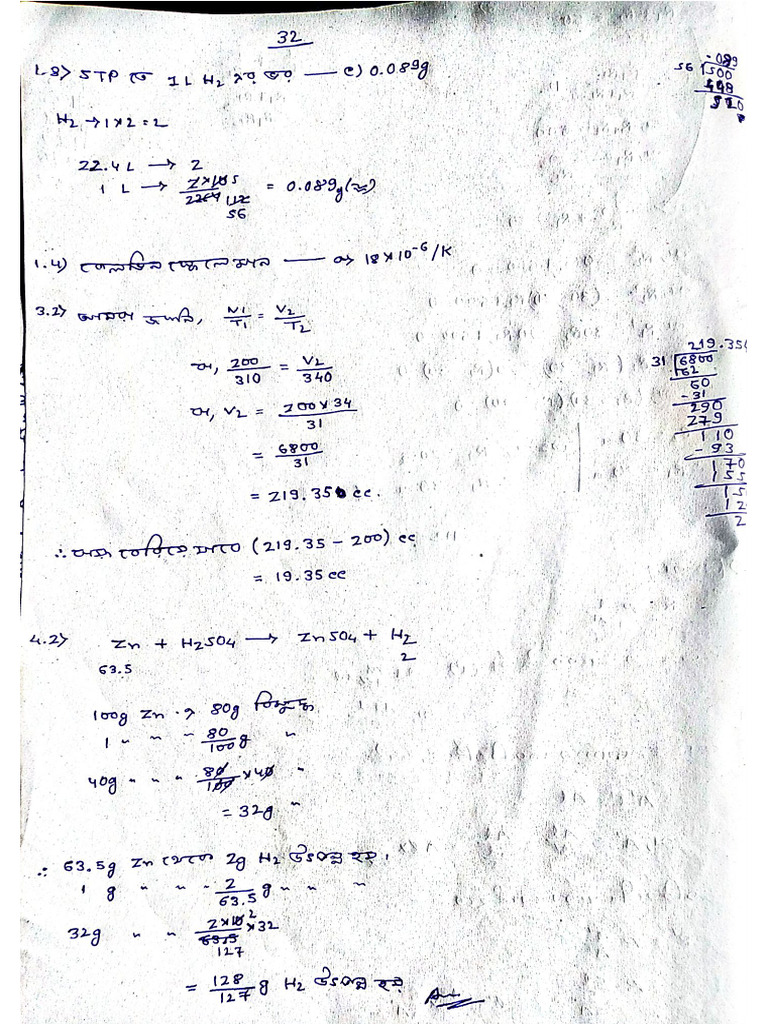 32
1.3> STP তে 1L H2 এর ভর — c) 0.089g
H2 → 1×2 = 2
22.4L → 2
1 L → 2×10 5 / 224 112 56 = 0.089g (≈)
.089
56 √500
448
520
1.4) কেলভিন স্কেলে মান — a> 18×10-6/K
3.2> আমরা জানি, V1/T1 = V2/T2
বা, 200/310 = V2/340
বা, V2 = 200×34/31
= 6800/31
= 219.35 cc.
219.35
31 √6800
62
60
-31
290
279
110
-93
170
155
15
12
2
∴ বায়ু বেরিয়ে যাবে (219.35 - 200) cc
= 19.35 cc
4.2> Zn + H2SO4 → ZnSO4 + H2
63.5 2
100g Zn → 80g বিশুদ্ধ
1 " " " 80/100 g "
40g " " " 80/100 ×40 "
= 32g "
∴ 63.5g Zn থেকে 2g H2 উৎপন্ন হয়।
1 g " " " 2/63.5 g " " "
32g " " 2×10 2/63.5 127 ×32
= 128/127 g H2 উৎপন্ন হয়
Ans